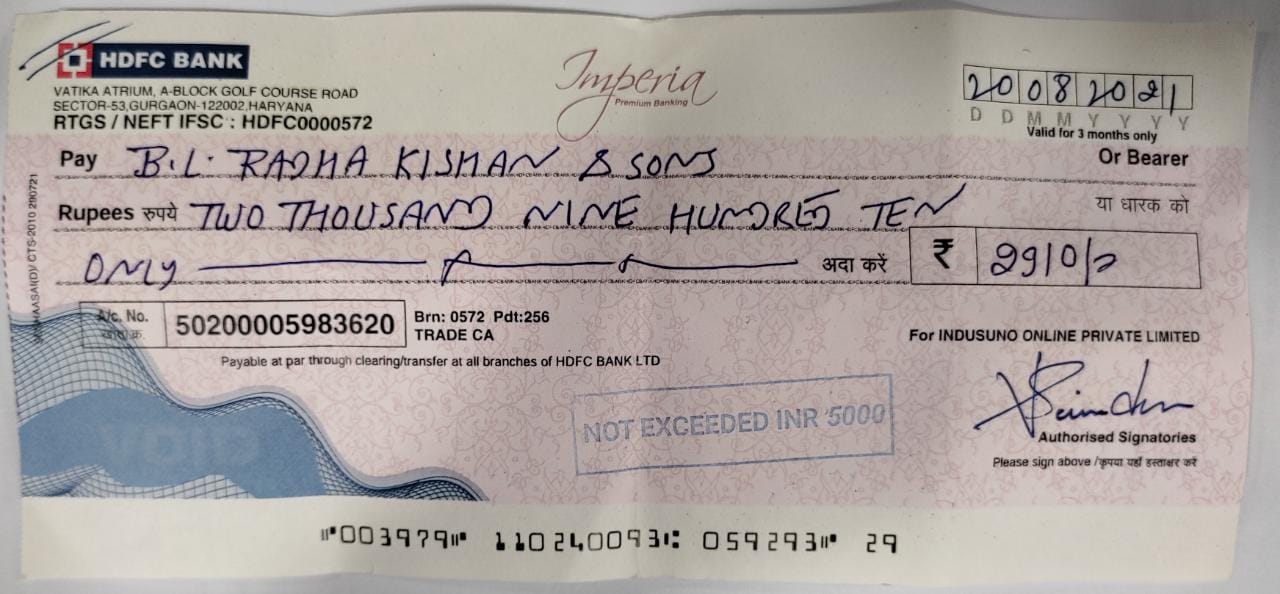 HDFC BANK
VATIKA ATRIUM, A-BLOCK GOLF COURSE ROAD
SECTOR-53,GURGAON-122002,HARYANA
RTGS / NEFT IFSC : HDFC0000572
Imperia
Premium Banking
20082021
D D M M Y Y Y Y
Valid for 3 months only
Pay B.L. RADHA KISHAN & SONS Or Bearer
Rupees रुपये TWO THOUSAND NINE HUNDRED TEN या धारक को
ONLY अदा करें ₹ 2910/=
A/c. No. 50200005983620 Brn: 0572 Pdt:256
खाता क्र. TRADE CA
Payable at par through clearing/transfer at all branches of HDFC BANK LTD
For INDUSUNO ONLINE PRIVATE LIMITED
NOT EXCEEDED INR 5000
Authorised Signatories
Please sign above /कृपया यहाँ हस्ताक्षर करें
VOID
⑈003979⑈ 110240093⑆ 059293⑈ 29